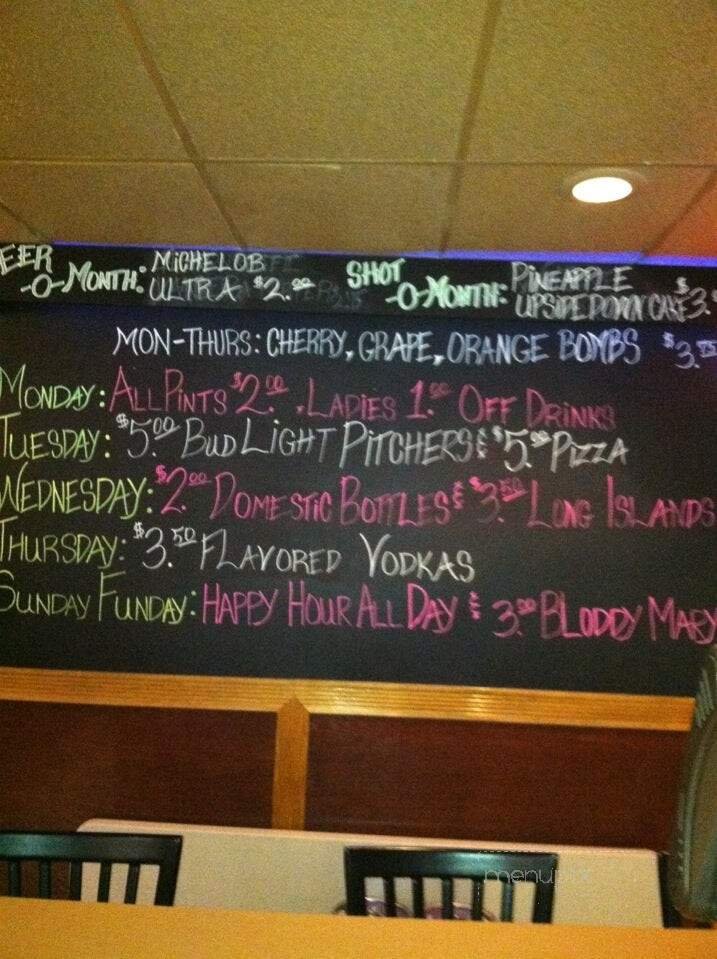 EER -O-MONTH: MICHELOB ULTRA $2.00 SHOT -O-MONTH: PINEAPPLE UPSIDEDOWN CAKE $3.
MON-THURS: CHERRY, GRAPE, ORANGE BOMBS $3.75
MONDAY: ALL PINTS $2.00 . LADIES 1.00 OFF DRINKS
TUESDAY: $5.00 BUD LIGHT PITCHERS & $5.00 PIZZA
WEDNESDAY: $2.00 DOMESTIC BOTTLES & $3.50 LONG ISLANDS
THURSDAY: $3.50 FLAVORED VODKAS
SUNDAY FUNDAY: HAPPY HOUR ALL DAY & 3.00 BLODDY MARY